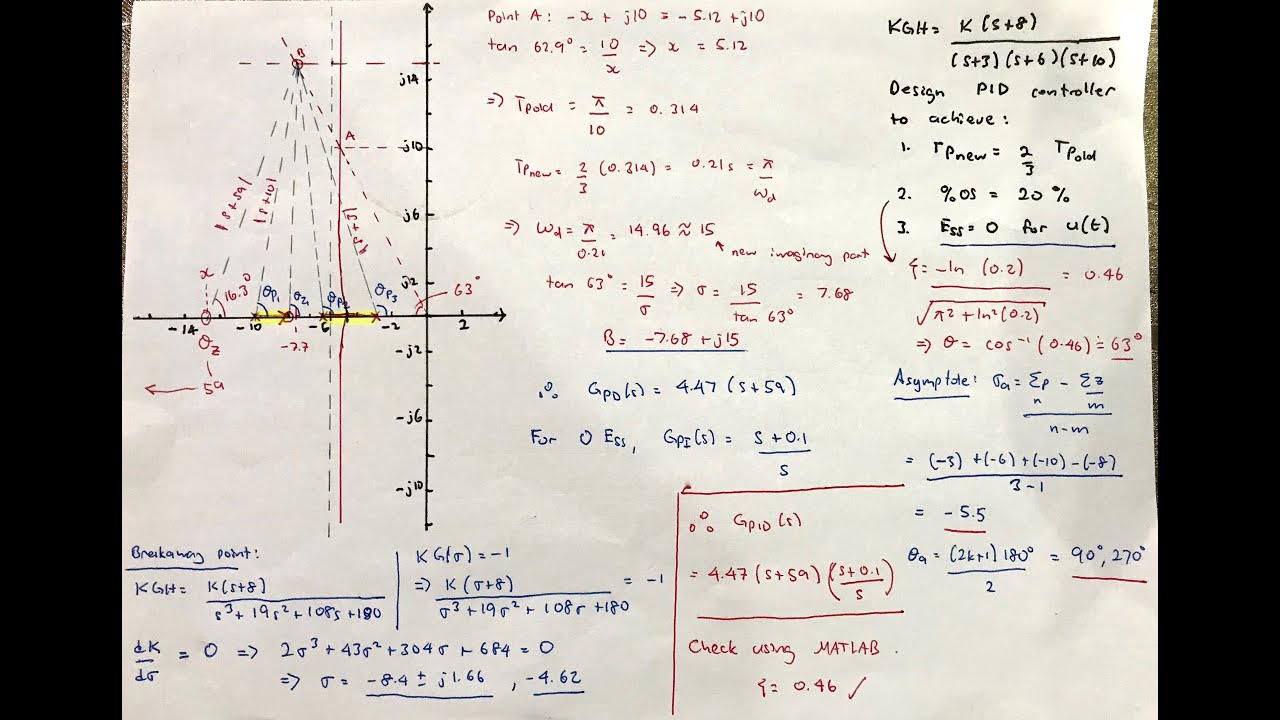 KGH = K(s+8) / (s+3)(s+6)(s+10)
Design PID controller
to achieve:
1. Tpnew = 2/3 Tpold
2. %OS = 20%
3. Ess = 0 for u(t)
ξ = -ln(0.2) / √π² + ln²(0.2) = 0.46
⇒ θ = cos⁻¹(0.46) ≐ 63°
Asymptote: σa = Σp/n - Σz/m / n-m
= (-3)+(-6)+(-10)-(-8) / 3-1
= -5.5
θa = (2k+1)180° / 2 = 90°, 270°
Point A: -x + j10 = -5.12 + j10
tan 62.9° = 10/x ⇒ x = 5.12
⇒ Tpold = π/10 = 0.314
Tpnew = 2/3 (0.314) = 0.21s = π/ωd
⇒ ωd = π/0.21 = 14.96 ≈ 15
new imaginary part
tan 63° = 15/σ ⇒ σ = 15/tan 63° = 7.68
B = -7.68 + j15
∴ GPD(s) = 4.47 (s+59)
For 0 Ess, GPI(s) = s+0.1 / s
∴ GPID(s)
= 4.47 (s+59) (s+0.1 / s)
Check using MATLAB.
ξ = 0.46 ✓
B
j14
A
j10
j6
j2
-j2
-j6
-j10
|s+59|
|s+10|
|s+3|
x
16.3°
θp1
θz1
θp2
θp3
63°
-14
-10
-6
-2
2
-7.7
θz
59
Breakaway point:
KGH = K(s+8) / s³+19s²+108s+180
KG(σ) = -1
⇒ K(σ+8) / σ³+19σ²+108σ+180 = -1
dK/dσ = 0 ⇒ 2σ³+43σ²+304σ+684 = 0
⇒ σ = -8.4 ± j1.66, -4.62